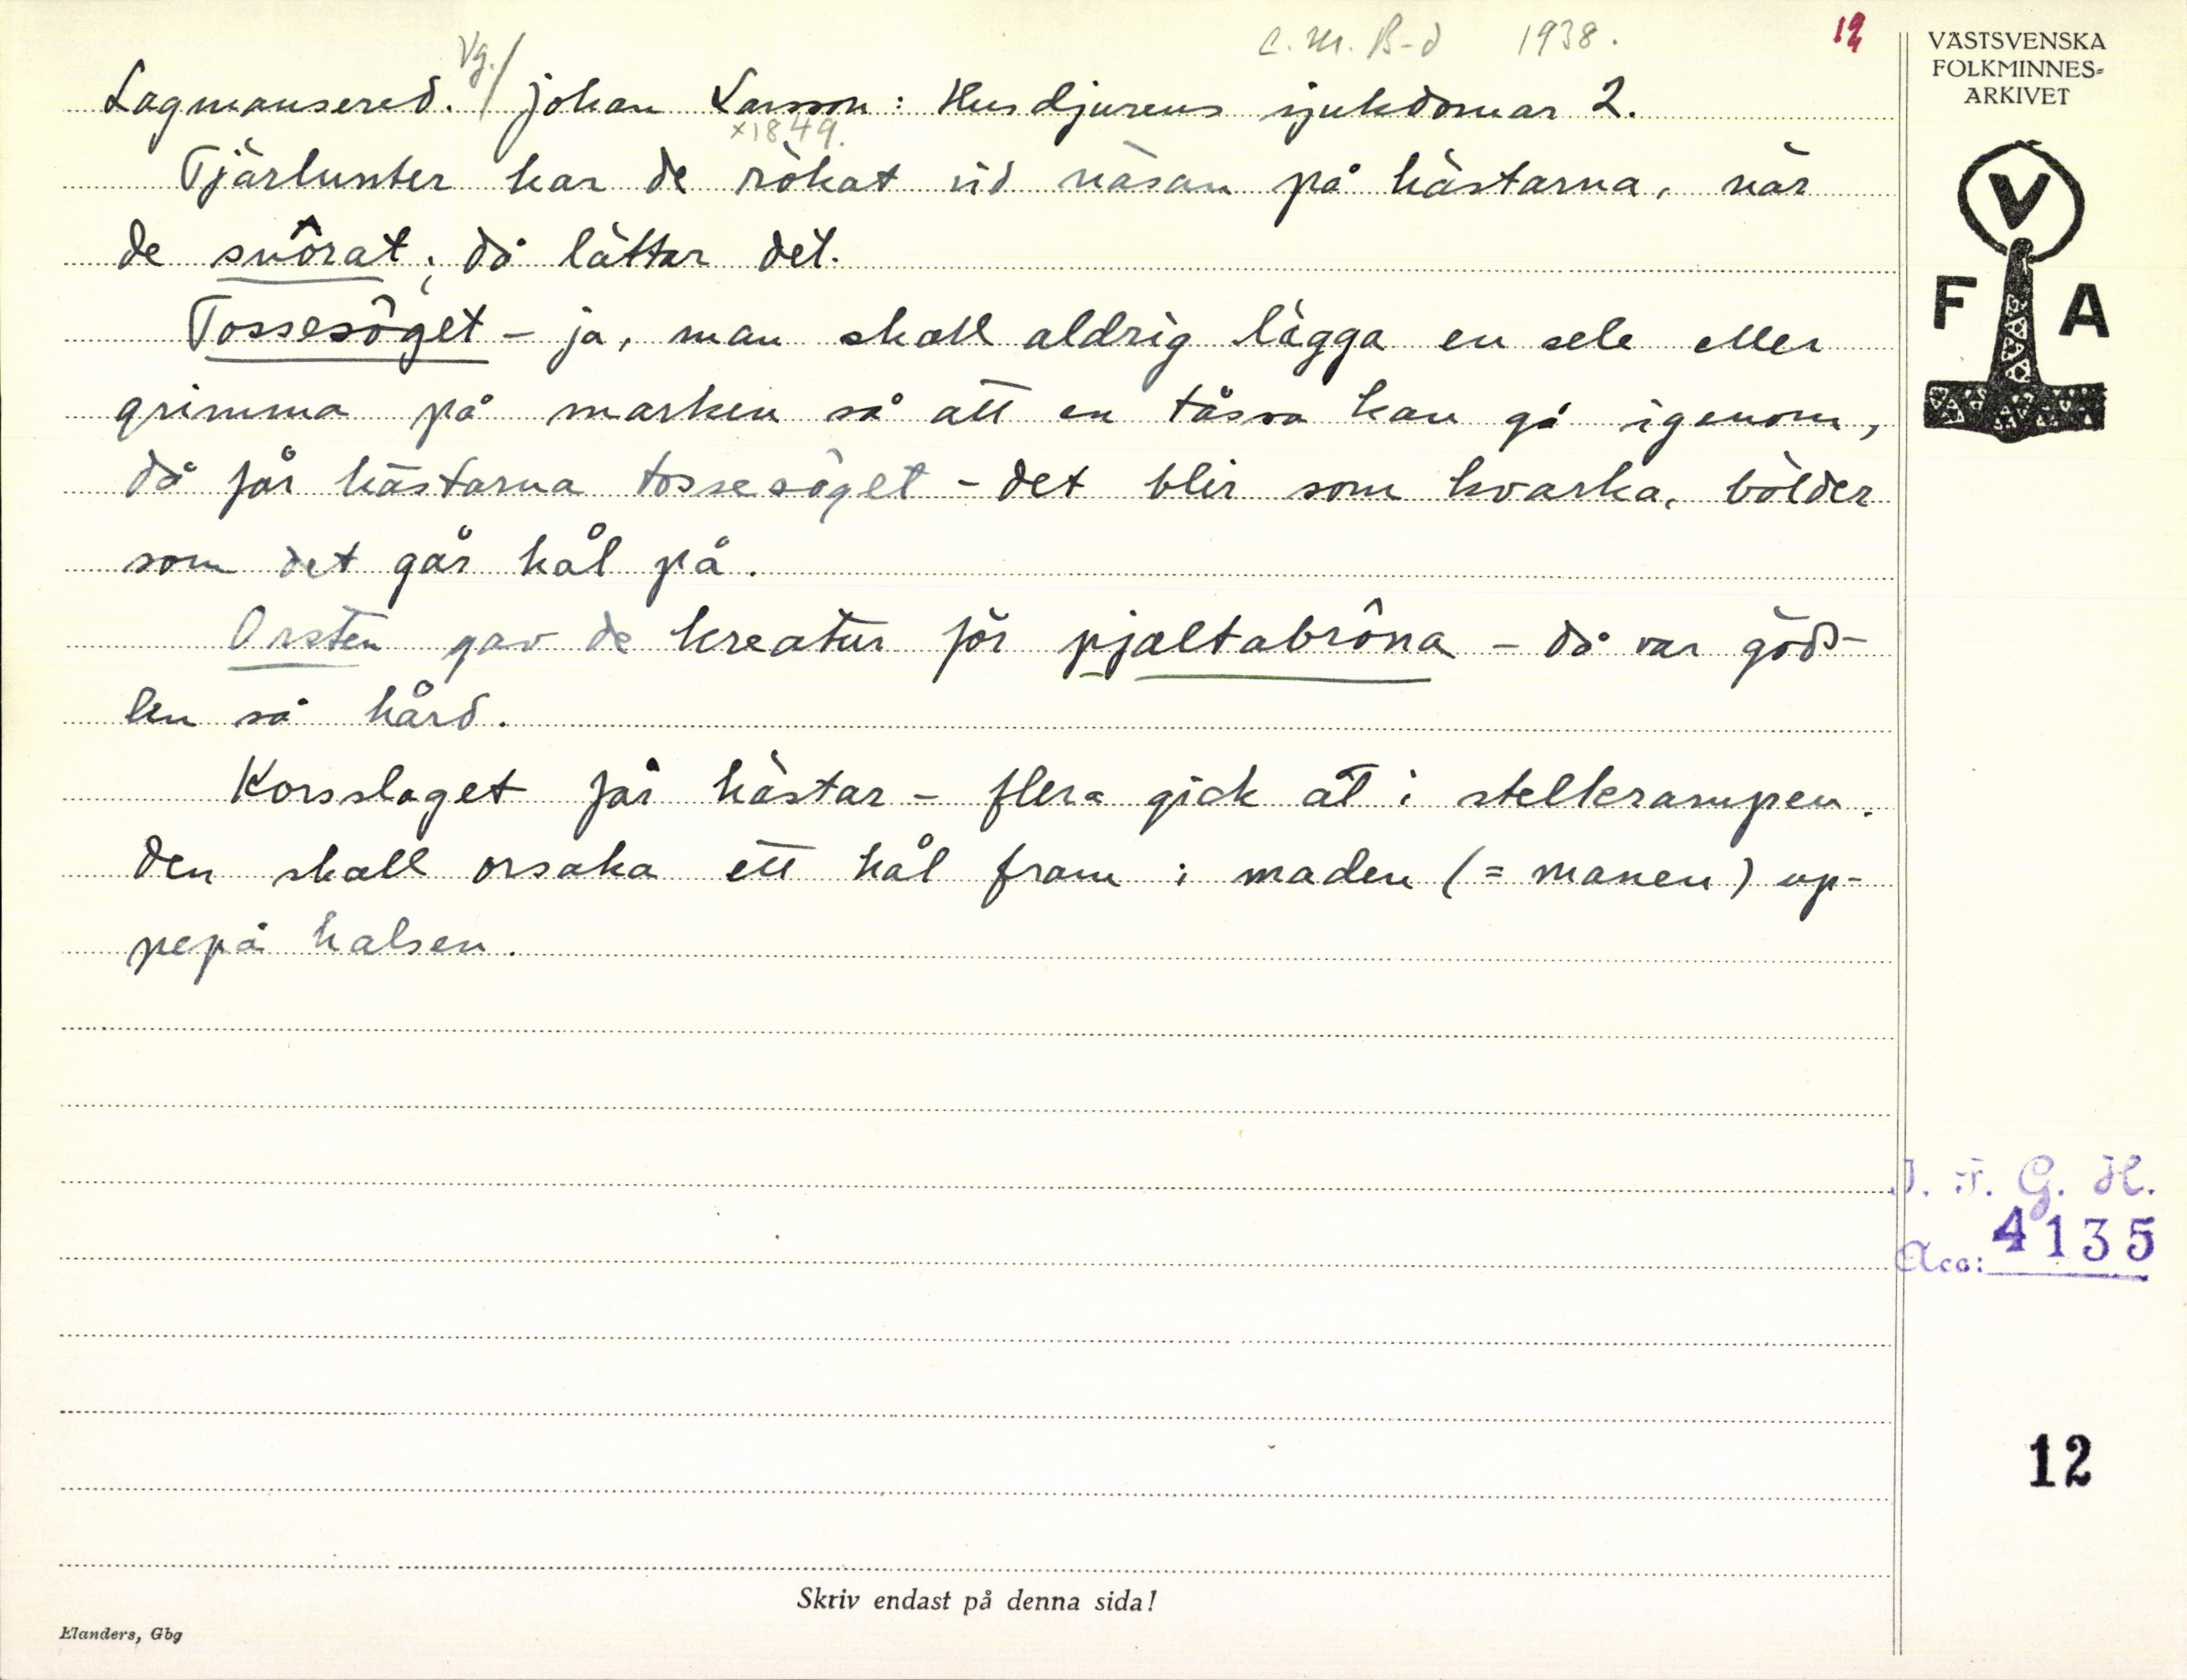 C. M. B-d 1938. 12
Vg./
Lagmansered. Johan Larsson: Husdjurens sjukdomar 2.
×1849.
Tjärlunter har de rökat vid näsan på hästarna, när
de snôrat; då lättar det.
Tossesôget - ja, man skall aldrig lägga en sele eller
grimma på marken så att en tåssa kan gå igenom,
då får hästarna tossesöget - det blir som kvarka, bölder
som det går hål på.
Orsten gav de kreatur för pjaltabrôna - då var göds-
len så hård.
Korsslaget får hästar - flera gick åt i stelkrampen.
Den skall orsaka ett hål fram i maden (= manen) up-
pepå halsen.
VÄSTSVENSKA
FOLKMINNES-
ARKIVET
V
F A
I. F. G. H.
Acc: 4135
12
Skriv endast på denna sida!
Elanders, Gbg